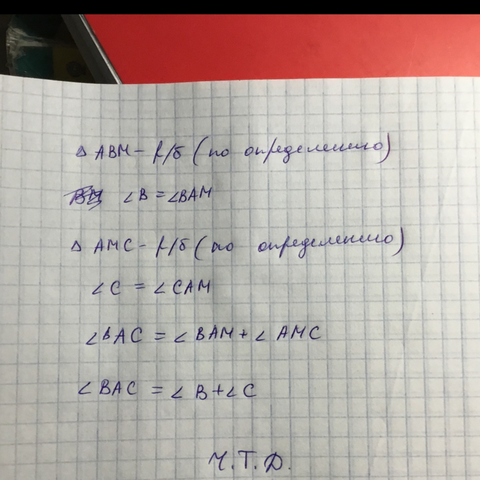 △ ABM - р/б (по определению)
∠B = ∠BAM
△ AMC - р/б (по определению)
∠C = ∠CAM
∠BAC = ∠BAM + ∠AMC
∠BAC = ∠B + ∠C
Ч.Т.Д.